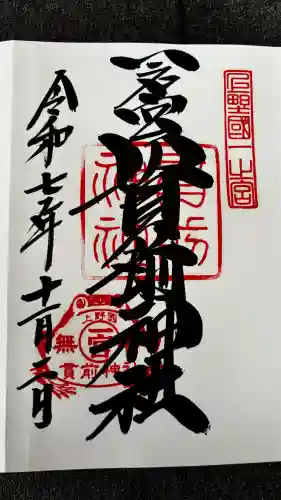 上野國一之宮
一之宮貫前神社
令和七年十一月二日
上野國
一宮
貫前神社